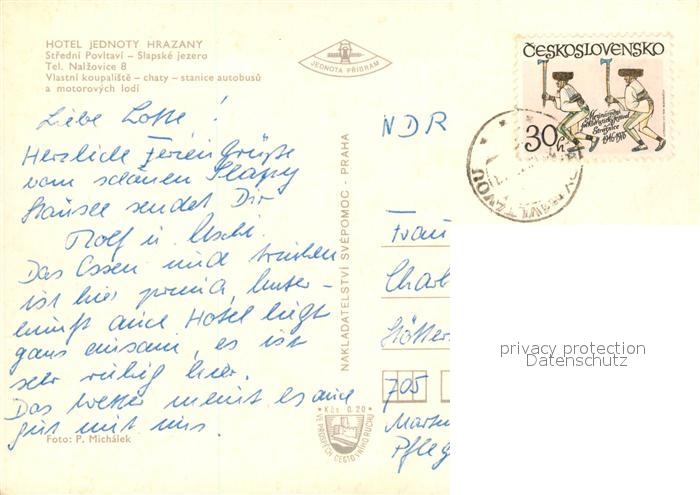 HOTEL JEDNOTY HRAZANY
Střední Povltaví – Slapské jezero
Tel. Nalžovice 8
Vlastní koupaliště – chaty – stanice autobusů
a motorových lodí
JEDNOTA PŘÍBRAM
ČESKOSLOVENSKO
30h
Strážnice
1946-1986
Liebe Lotte!
Herzliche Feriengrüße
vom schönen Slapy
Stausee sendet Dir
Rolf u. Uschi.
Das Essen und trinken
ist hier prima, Unter-
kunft auch, Hotel liegt
ganz einsam, es ist
sehr ruhig hier.
Das Wetter meint es auch
gut mit uns.
Foto: P. Michálek
NAKLADATELSTVÍ SVÉPOMOC - PRAHA
Kčs 0.20
VE PROSPĚCH CESTOVNÍHO RUCHU
NDR
Frau
Charl
Stötter
705
Pfleg
privacy protection
Datenschutz